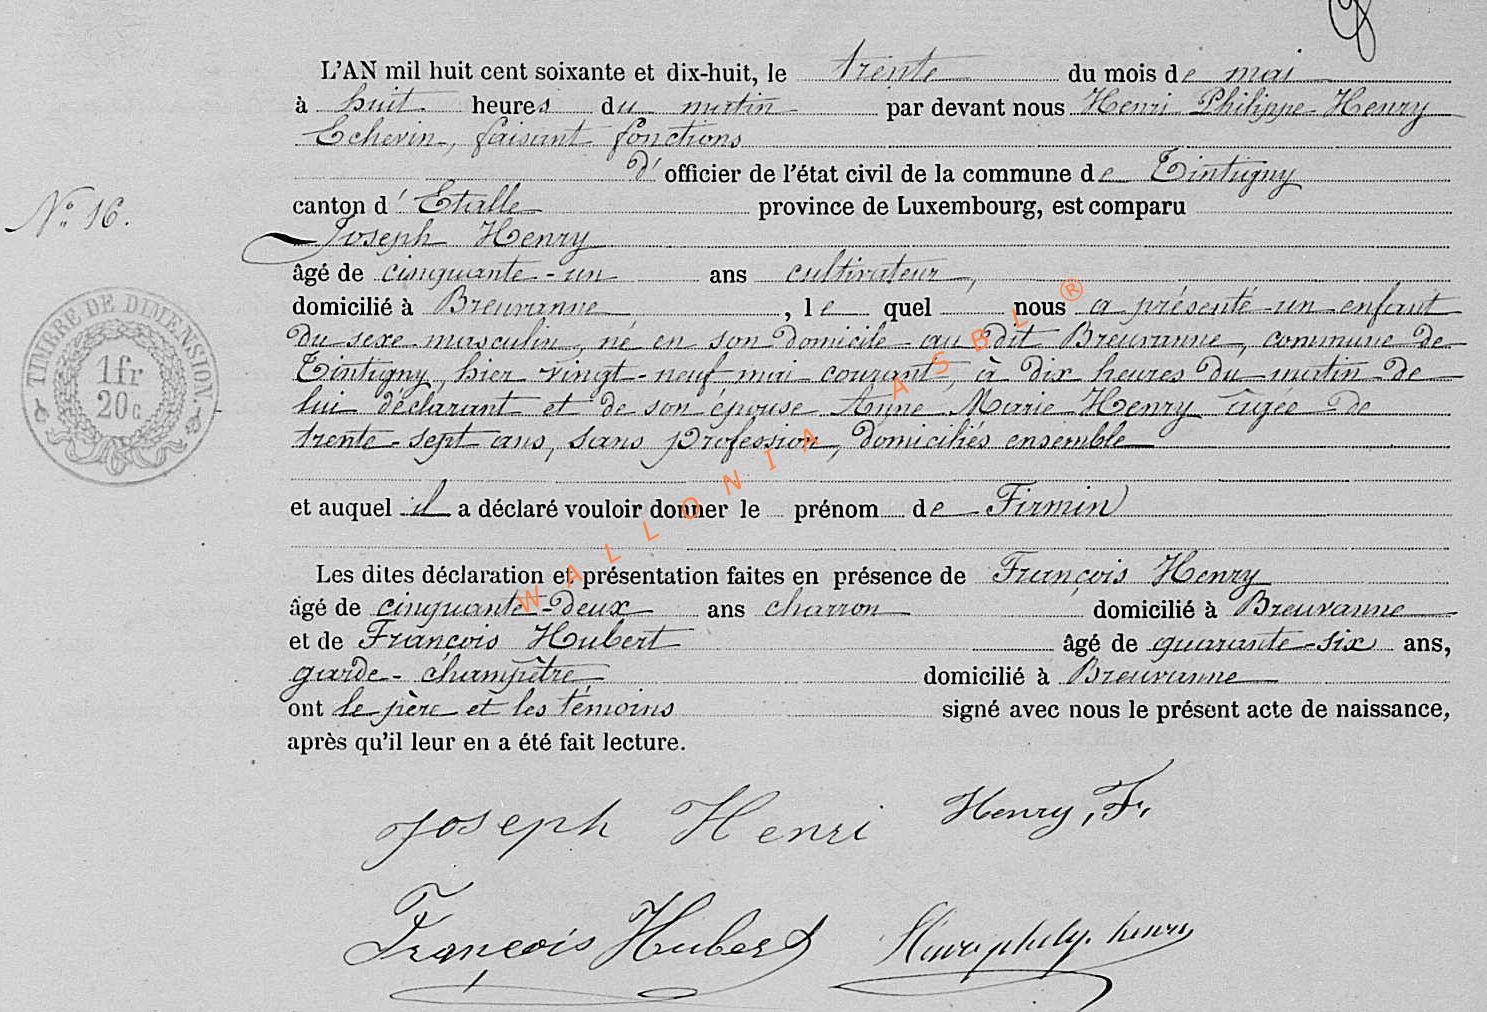 L'AN mil huit cent soixante et dix-huit, le trente du mois de mai
à huit heures du matin par devant nous Henri Philippe Henry
Echevin, faisant fonctions
d' officier de l'état civil de la commune de Tintigny
N.º 16.
canton d' Etalle province de Luxembourg, est comparu
Joseph Henry
âgé de cinquante-un ans cultivateur,
domicilié à Breuvanne, le quel nous a présenté un enfant
du sexe masculin, né en son domicile au dit Breuvanne, commune de
Tintigny, hier vingt-neuf mai courant, à dix heures du matin de
lui déclarant et de son épouse Anne Marie Henry âgée de
trente-sept ans, sans profession, domiciliés ensemble
TIMBRE DE DIMENSION
1fr
20c
et auquel il a déclaré vouloir donner le prénom de Firmin
Les dites déclaration et présentation faites en présence de François Henry
âgé de cinquante-deux ans charron domicilié à Breuvanne
et de François Hubert âgé de quarante-six ans,
garde-champêtre domicilié à Breuvanne
ont le père et les témoins signé avec nous le présent acte de naissance,
après qu'il leur en a été fait lecture.
Joseph Henri Henry, F.
François Hubert Henri philip. henry
WALLONIA ASBL ®